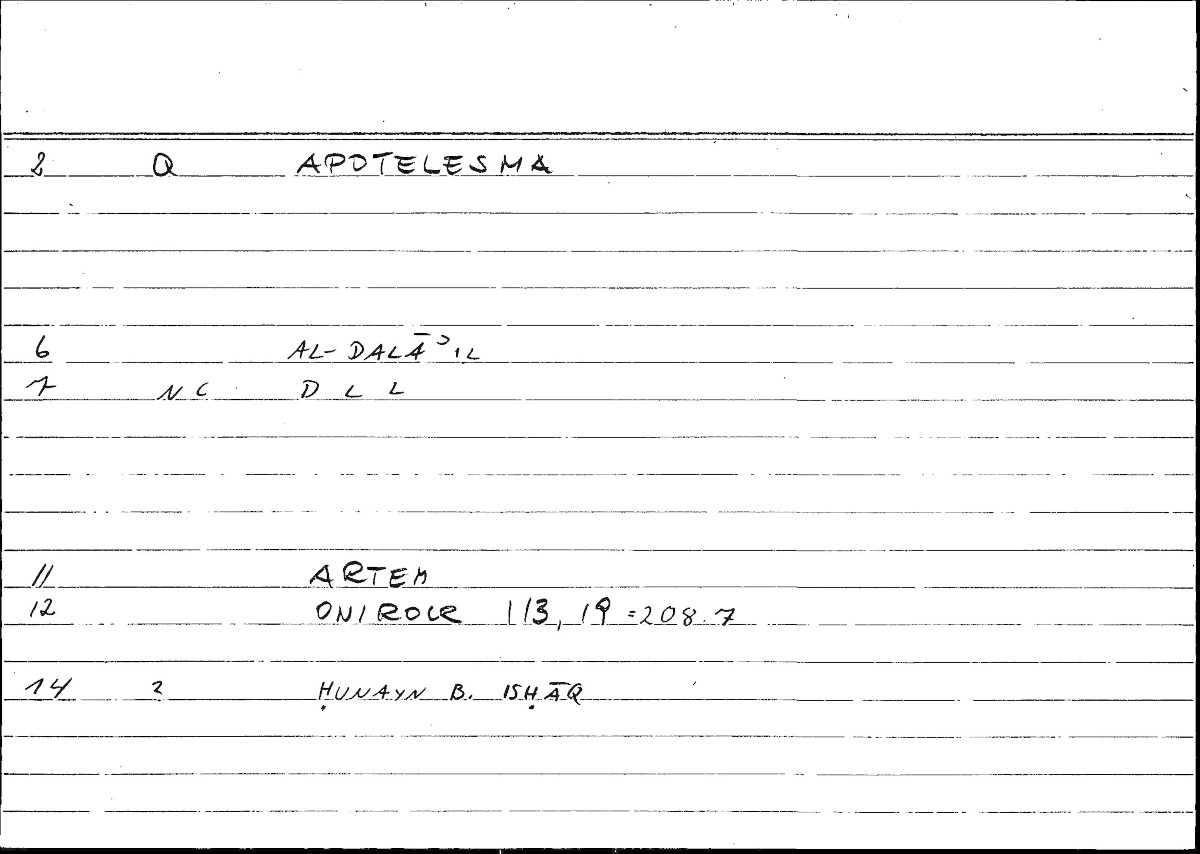 2 Q APOTELESMA
6 AL-DALĀʾIL
7 NC D L L
11 ARTEM
12 ONIROCR 113,19 =208.7
14 2 ḤUNAYN B. ISḤĀQ